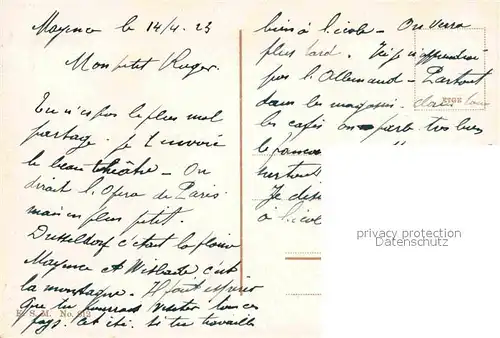 Mayence le 14/4. 23
Mon petit Roger.
Tu n'es pas le plus mal
partagé. je t'envoie
le beau théâtre - On
dirait l'Opera de Paris
mais en plus petit.
Dusseldorf c'était la plaine
Mayence et Wisbade c'est
la montagne. Il faut espérer
que tu pourras visiter tous ces
pays. cet été. si tu travailles
K. S. M. No. 312
bien à l'école - On verra
plus tard. Ici je n'apprendrai
pas l'Allemand - Partout
dans les magasins. dans tous
les cafés on parle très bien
le
surtout
Je
à l'école
privates Photo
Datenschutz